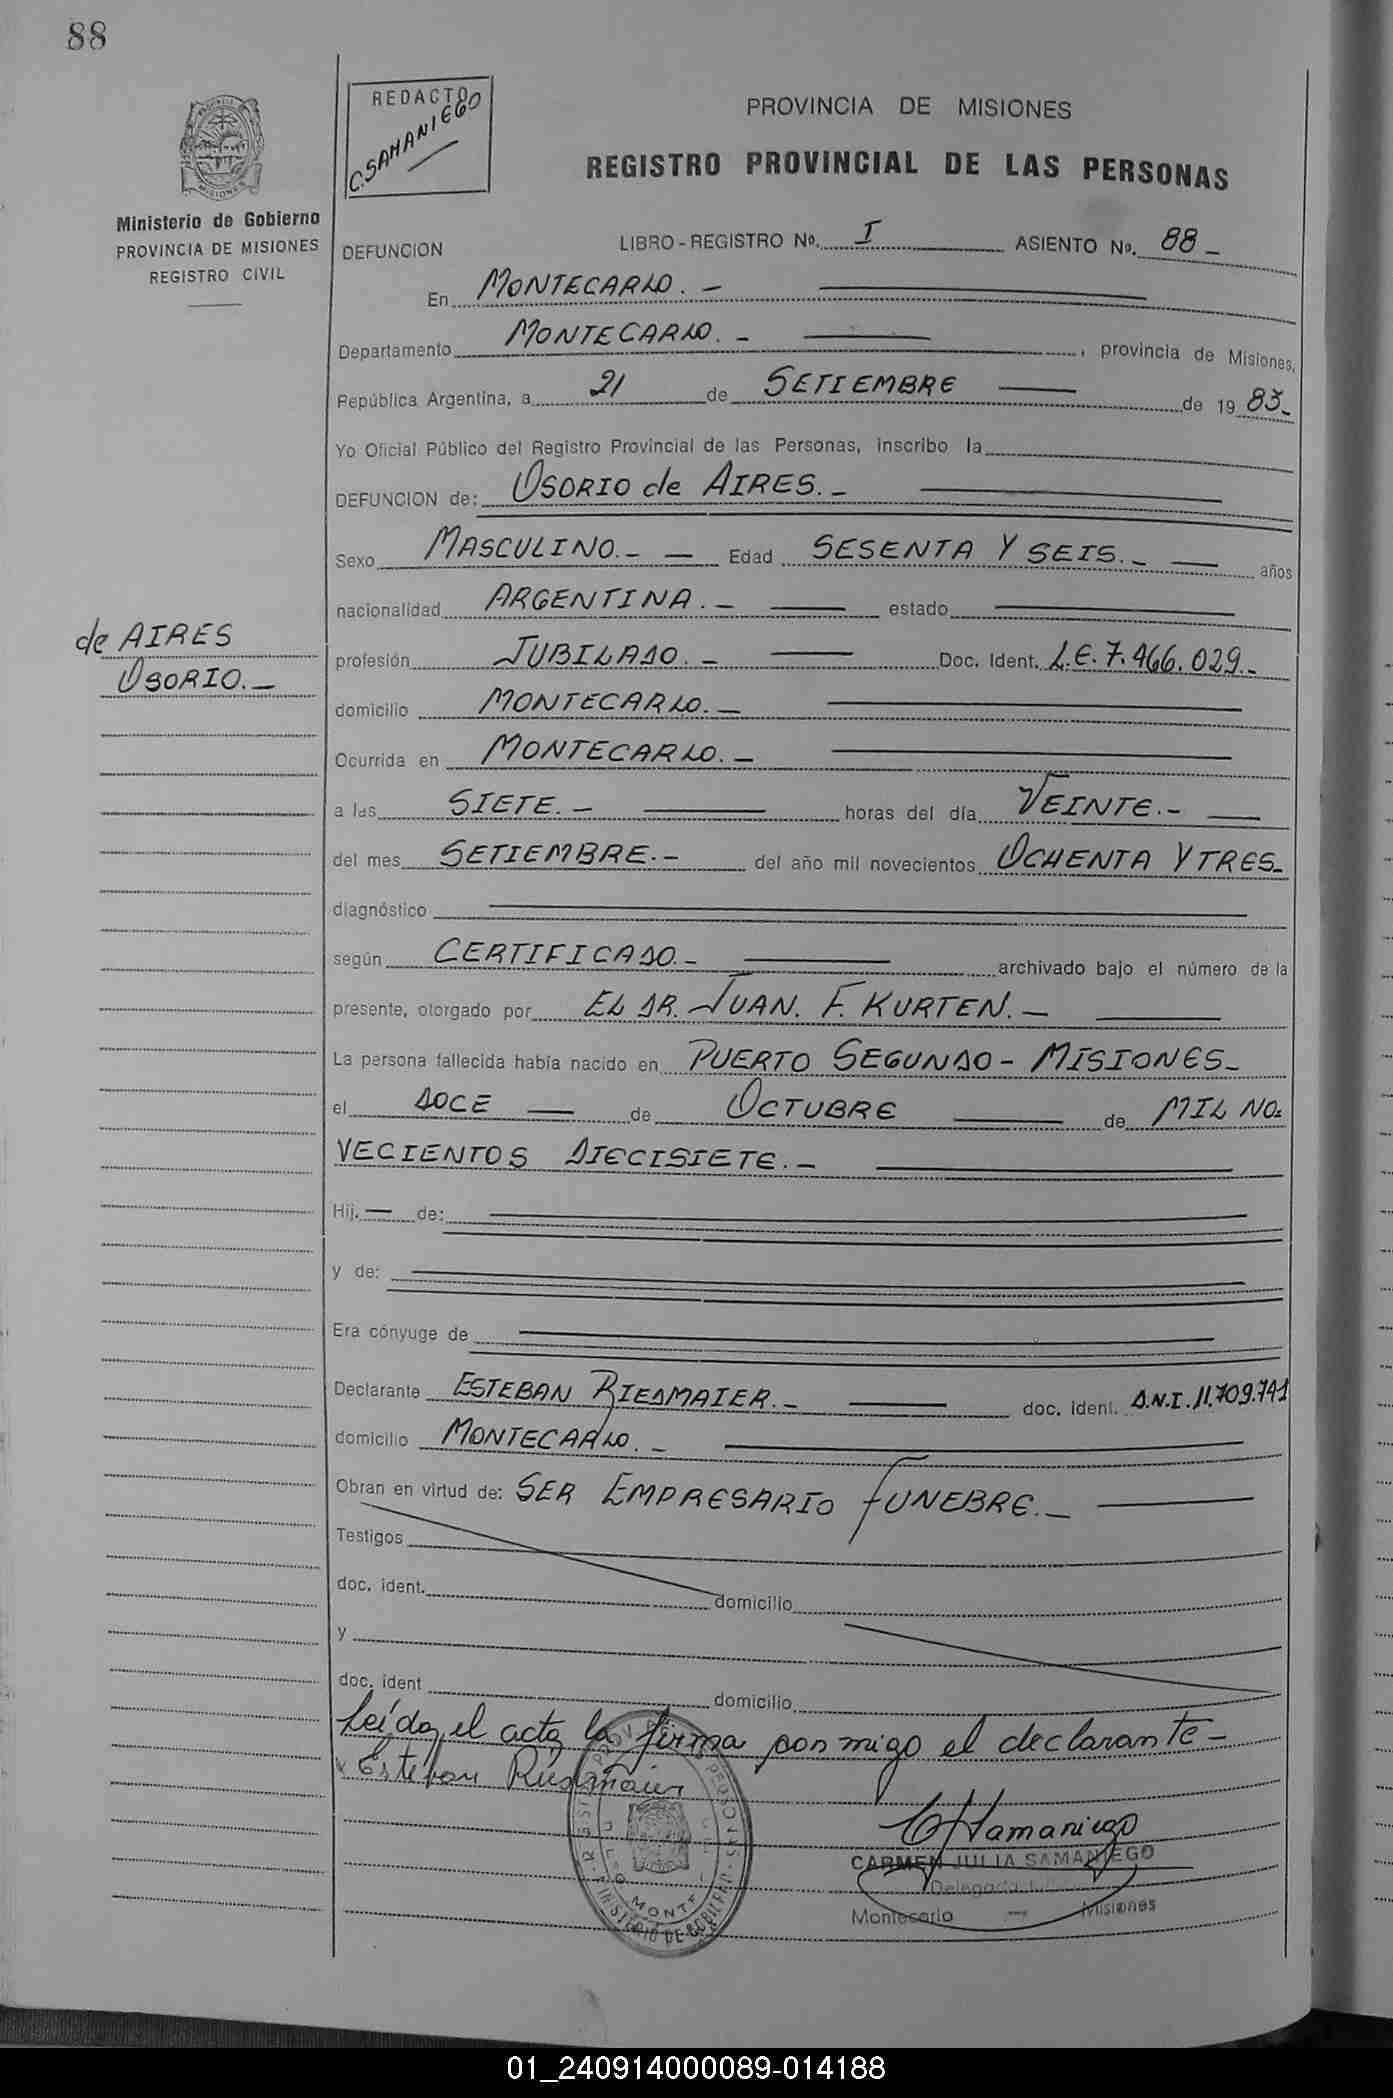 88
REDACTO
C. SAMANIEGO
PROVINCIA DE MISIONES
REGISTRO PROVINCIAL DE LAS PERSONAS
Ministerio de Gobierno
PROVINCIA DE MISIONES
REGISTRO CIVIL
DEFUNCION LIBRO-REGISTRO Nº. I ASIENTO Nº. 88-
En MONTECARLO.-
Departamento MONTECARLO.- , provincia de Misiones,
República Argentina, a 21 de SETIEMBRE de 1983-
Yo Oficial Público del Registro Provincial de las Personas, inscribo la
DEFUNCION de: OSORIO de AIRES.-
Sexo MASCULINO.- Edad SESENTA Y SEIS.- años
nacionalidad ARGENTINA.- estado
de AIRES
OSORIO.-
profesión JUBILADO.- Doc. Ident. L.E.7.466.029.-
domicilio MONTECARLO.-
Ocurrida en MONTECARLO.-
a las SIETE.- horas del día VEINTE.-
del mes SETIEMBRE.- del año mil novecientos OCHENTA Y TRES-
diagnóstico
según CERTIFICADO.- archivado bajo el número de la
presente, otorgado por EL DR. JUAN. F. KURTEN.-
La persona fallecida había nacido en PUERTO SEGUNDO - MISIONES-
el DOCE de OCTUBRE de MIL NO=
VECIENTOS DIECISIETE.-
Hij. de:
y de:
Era cónyuge de
Declarante ESTEBAN RIEDMAIER.- doc. ident. D.N.I. 11.709.741
domicilio MONTECARLO.-
Obran en virtud de: SER EMPRESARIO FUNEBRE.-
Testigos
doc. ident. domicilio
y
doc. ident domicilio
Leída el acta la firma con migo el declarante-
Esteban Riedmaier
CSamaniego
CARMEN JULIA SAMANIEGO
Delegada
Montecarlo - Misiones
MINISTERIO DE GOBIERNO
01_240914000089-014188